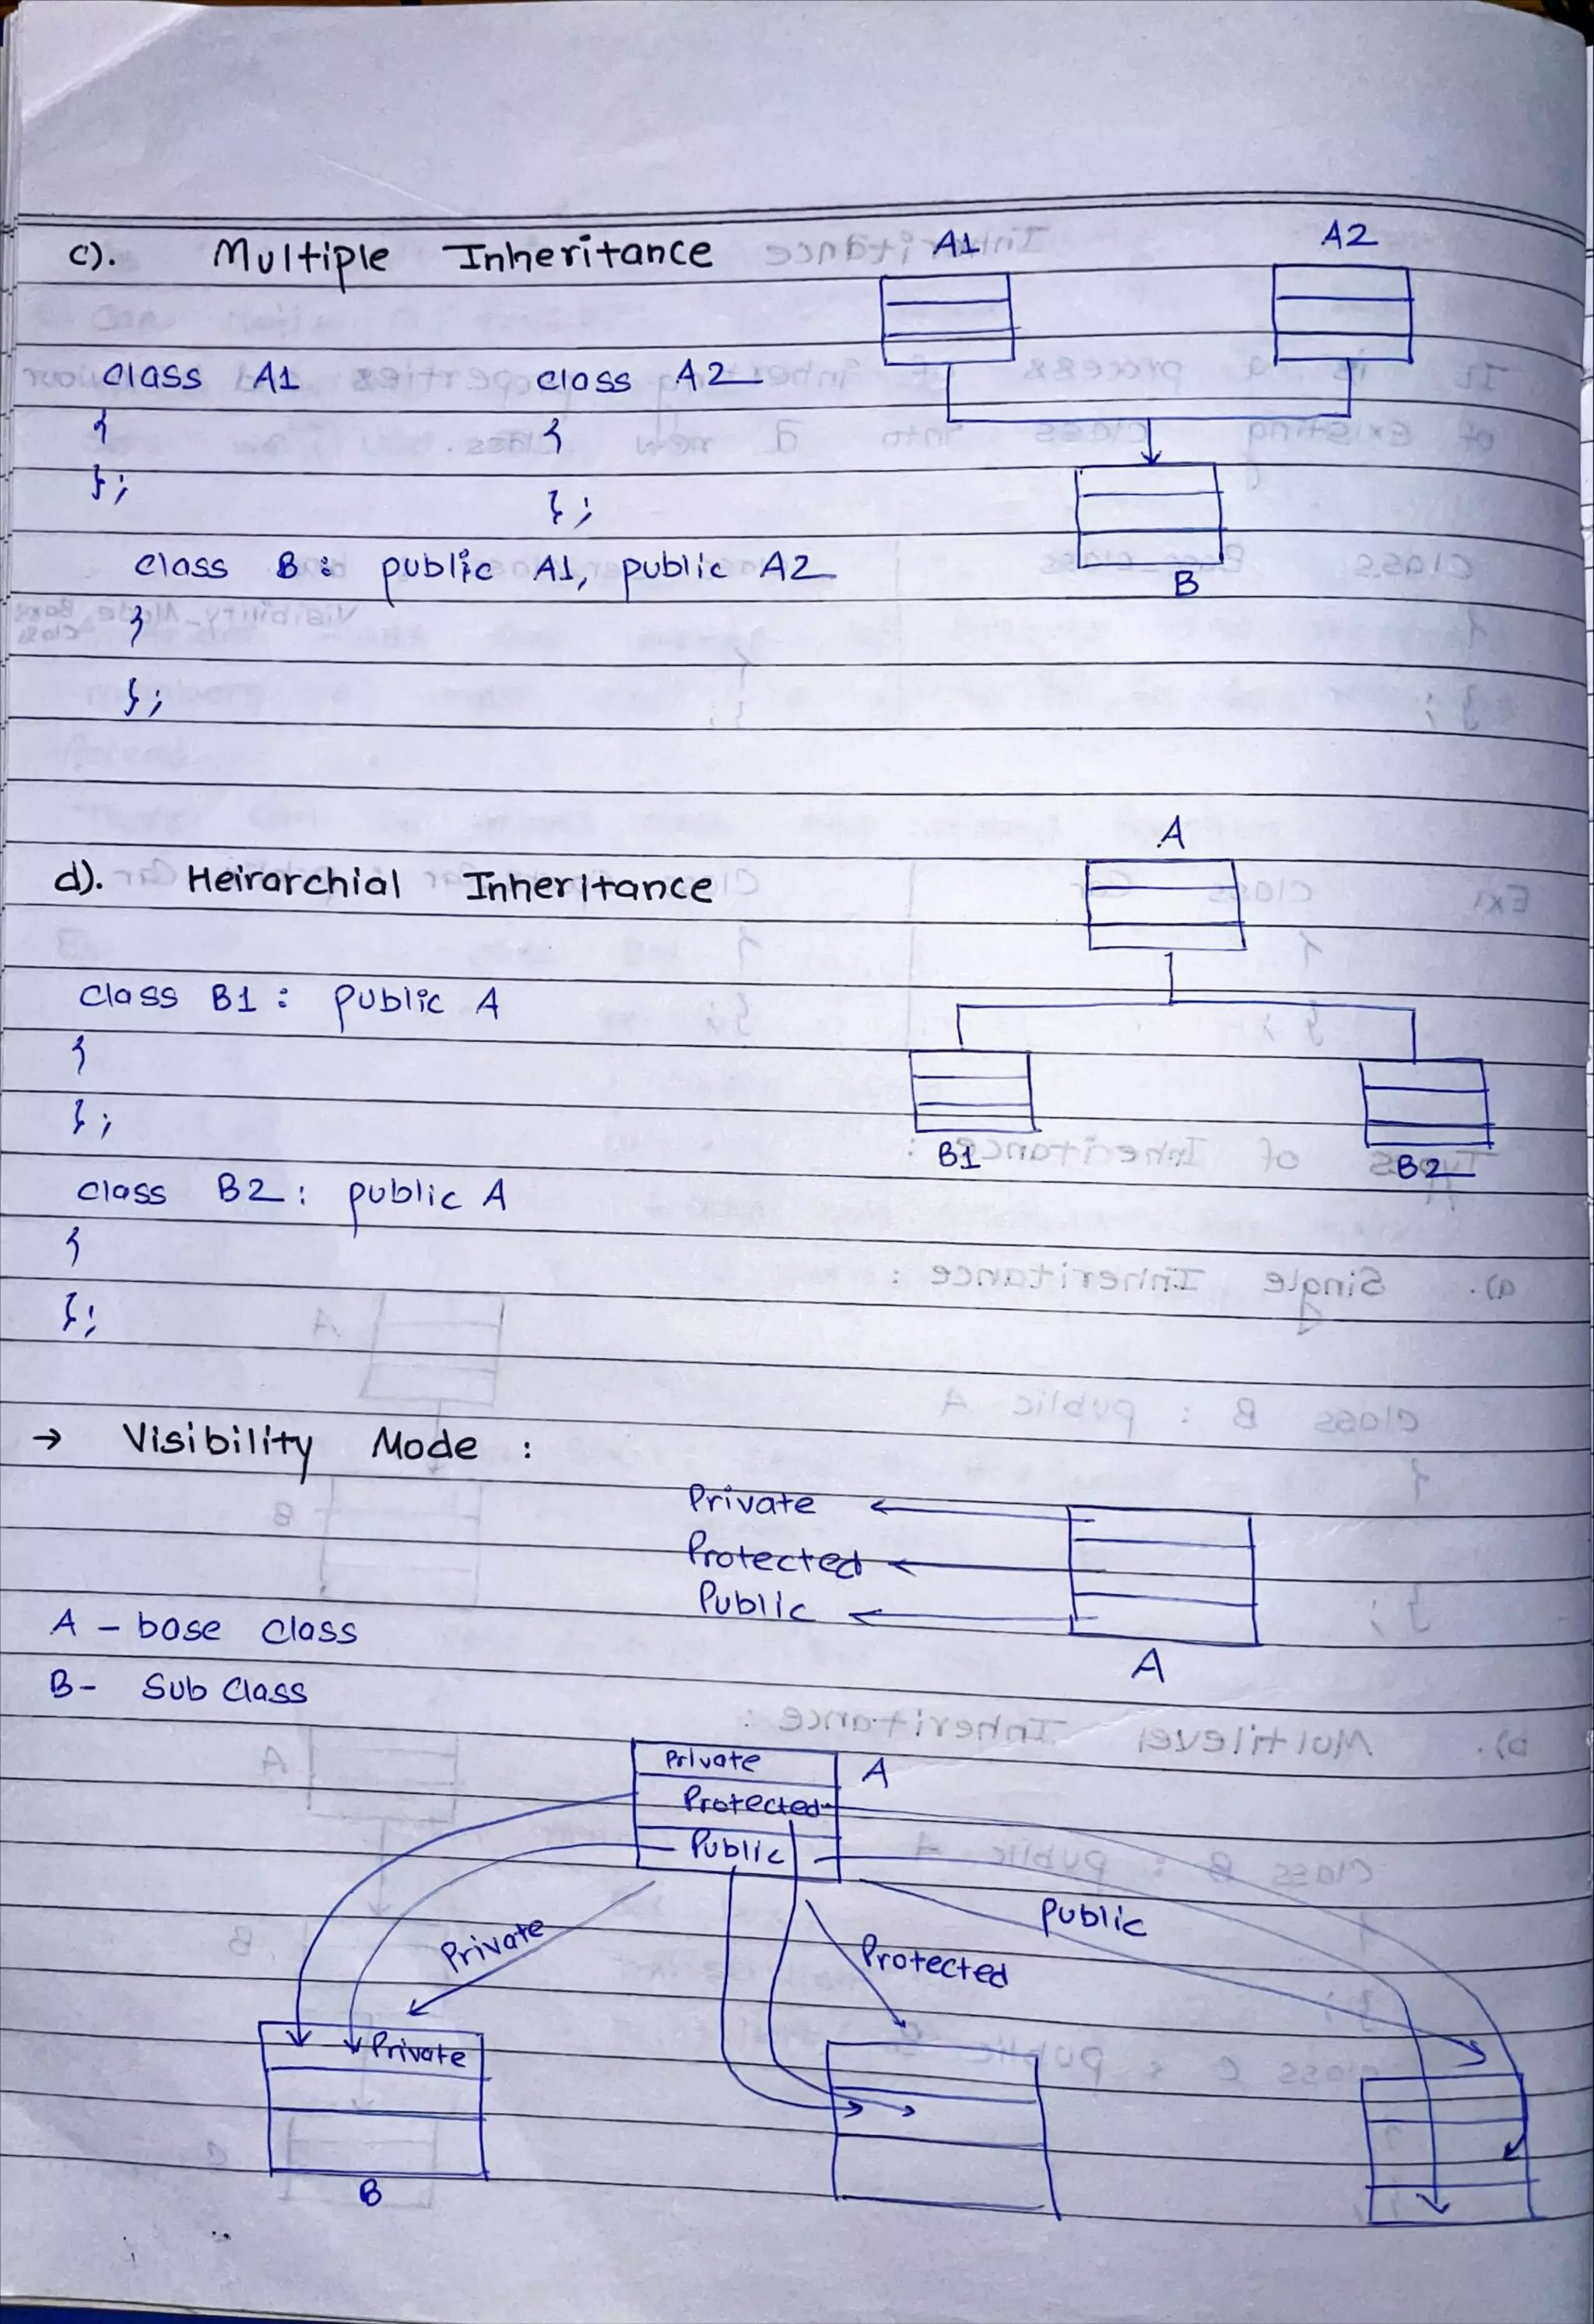 c). Multiple Inheritance
A1 A2
class A1 class A2
{ {
}; };
class B : public A1, public A2
B
{
};
A
d). Heirarchial Inheritance
class B1 : public A
{
};
B1 B2
class B2 : public A
{
};
→ Visibility Mode :
Private
Protected
Public
A
A - base class
B- Sub Class
Private A
Protected
Public
Private Protected Public
Private
B